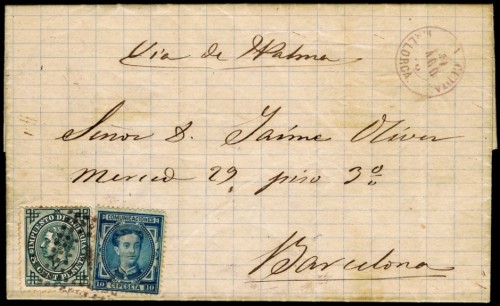 Via de Palma
MALLORCA
Señor D. Jaime Oliver
Merced 29, piso 3º
Barcelona
IMPUESTO DE GUERRA
5 CENT PESETA
COMUNICACIONES
10 CTPESETA 10